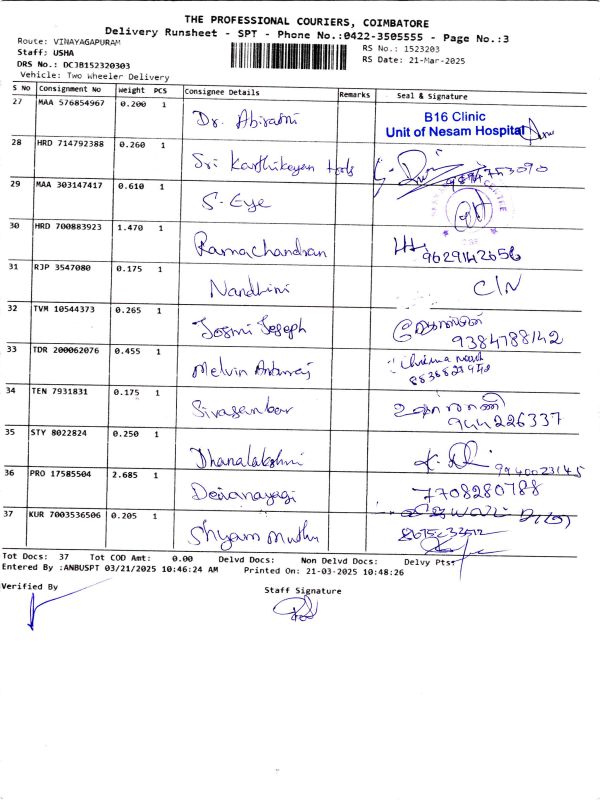 THE PROFESSIONAL COURIERS, COIMBATORE
Delivery Runsheet - SPT - Phone No.:0422-3505555 - Page No.:3
Route: VINAYAGAPURAM
RS No.: 1523203
Staff: USHA
RS Date: 21-Mar-2025
DRS No.: DCJB152320303
Vehicle: Two Wheeler Delivery
S No Consignment No Weight PCS Consignee Details Remarks Seal & Signature
27 MAA 576854967 0.200 1 Dr. Abirami B16 Clinic
Unit of Nesam Hospital
28 HRD 714792388 0.260 1 Sri Karthikeyan tools
29 MAA 303147417 0.610 1 S-Eye
30 HRD 700883923 1.470 1 Ramachandran 9629142656
31 RJP 3547080 0.175 1 Nandhini C/N
32 TVM 10544373 0.265 1 Josmi Joseph
9384788142
33 TDR 200062076 0.455 1 Melvin
34 TEN 7931831 0.175 1 Sivasankar
944226337
35 STY 8022824 0.250 1 Dhanalakshmi 9940023145
36 PRO 17585504 2.685 1 Deivanayagi 7708280788
37 KUR 7003536506 0.205 1 Shyam Muthu
Tot Docs: 37 Tot COD Amt: 0.00 Delvd Docs: Non Delvd Docs: Delvy Pts:
Entered By :ANBUSPT 03/21/2025 10:46:24 AM Printed On: 21-03-2025 10:48:26
Verified By
Staff Signature